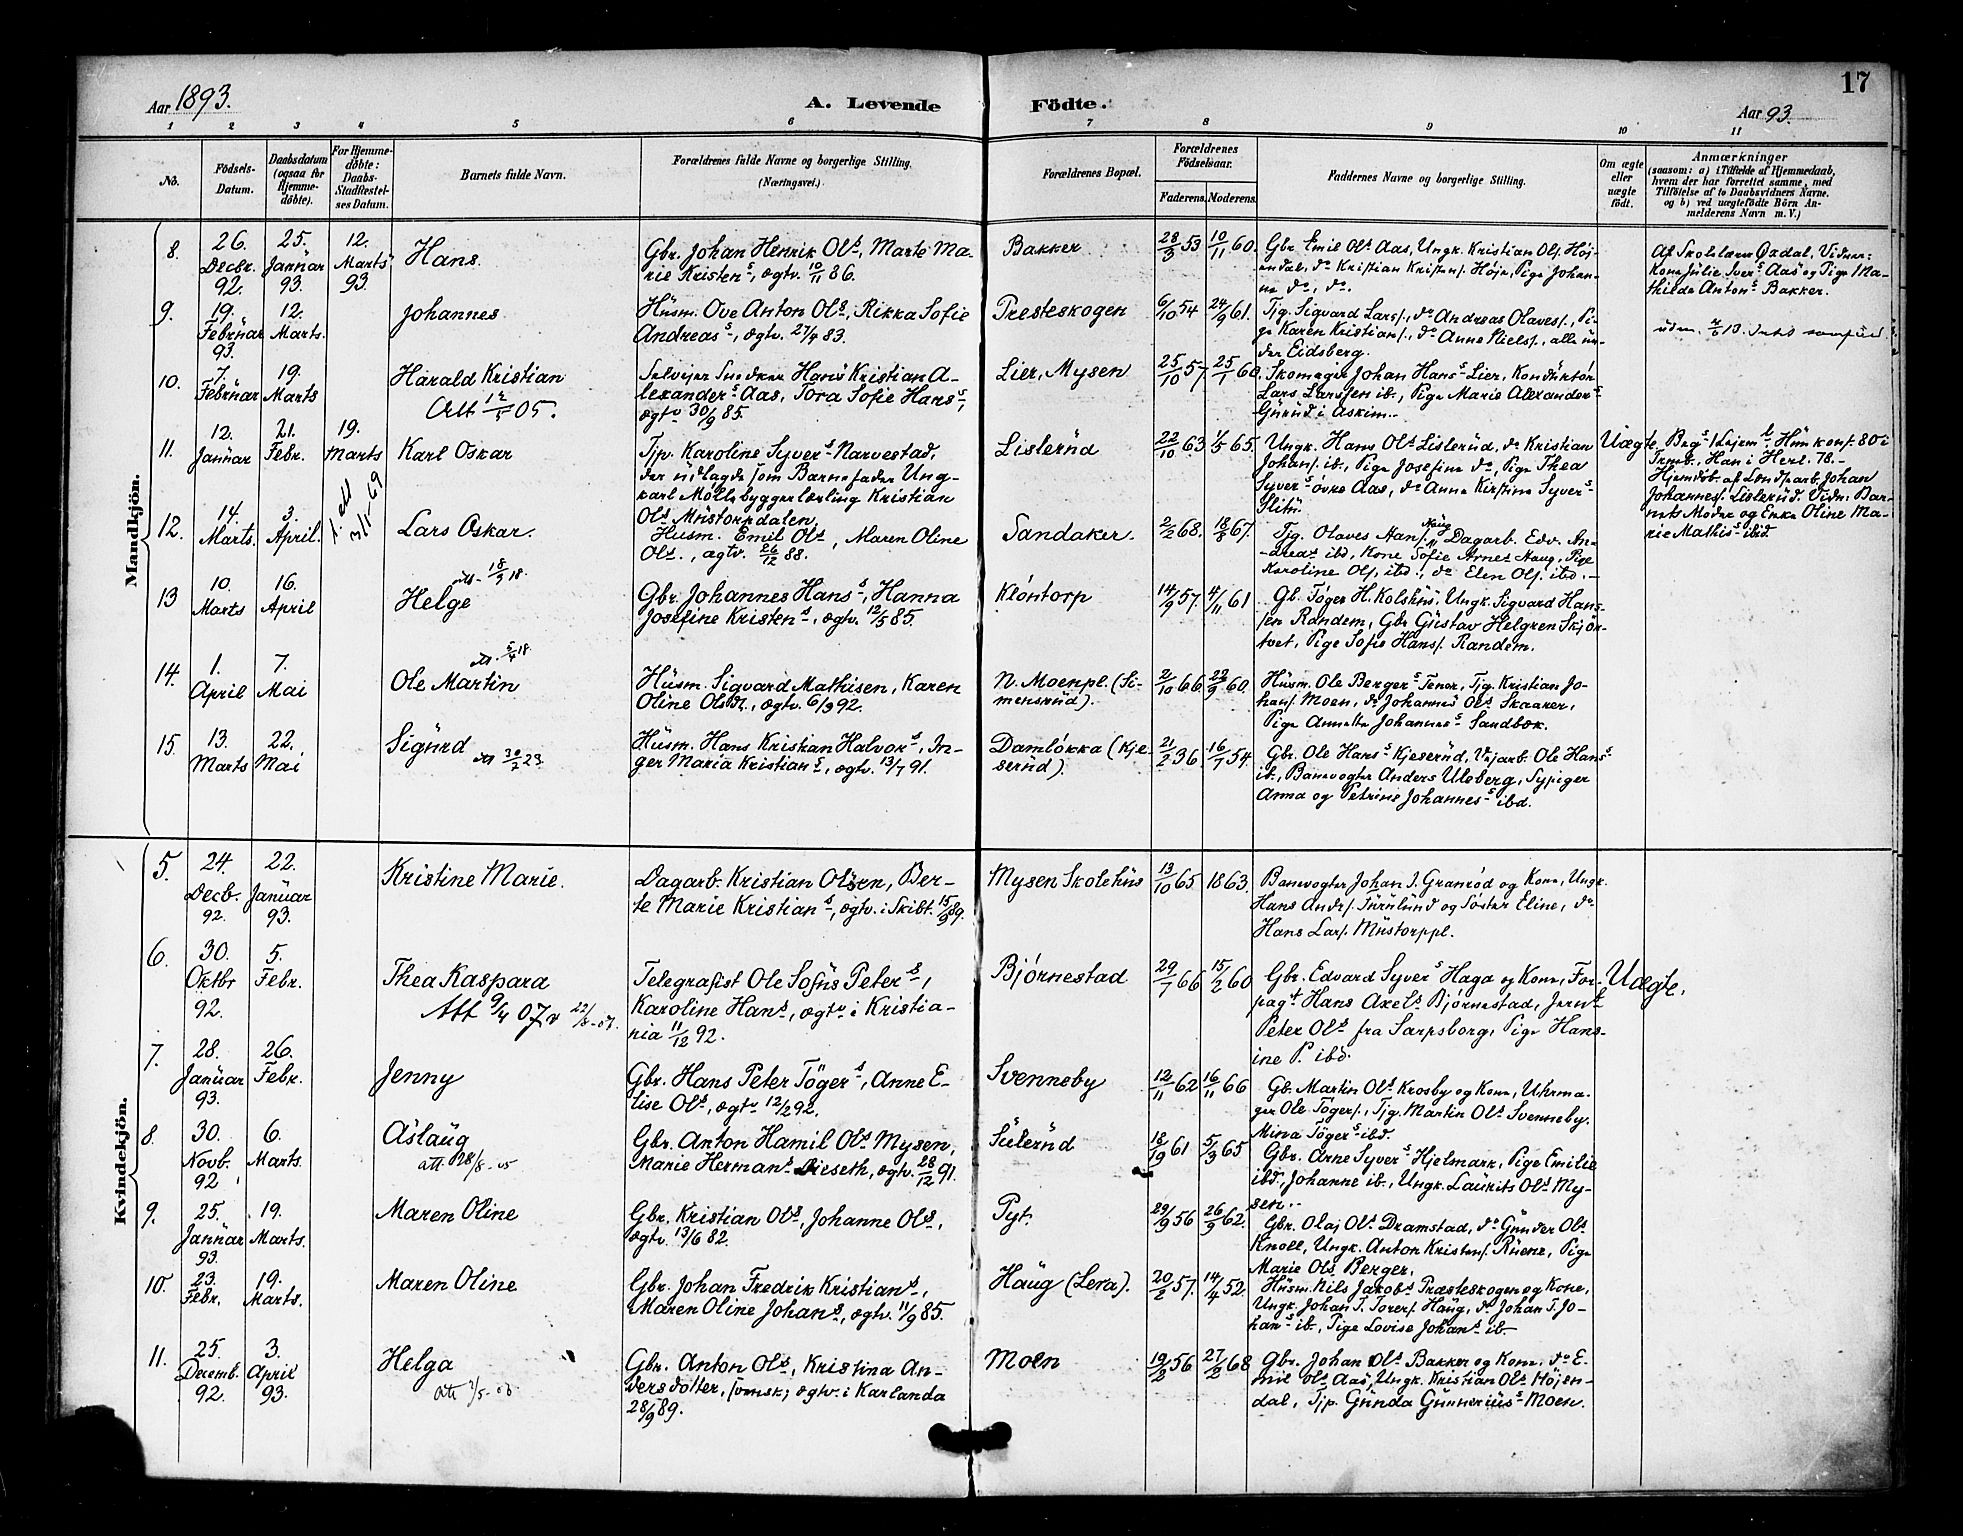 17
Aar 1893.
A. Levende Födte.
Aar 93.
1 2 3 4 5 6 7 8 9 10 11
No.
Födsels-
Datum.
Daabsdatum
(ogsaa for
Hjemme-
döbte).
For Hjemme-
döbte:
Daabs-
Stadfæstel-
ses Datum.
Barnets fulde Navn.
Forældrenes fulde Navne og borgerlige Stilling.
(Næringsvei.)
Forældrenes Bopæl.
Forældrenes
Födselsaar.
Faderens. Moderens.
Faddernes Navne og borgerlige Stilling.
Om ægte
eller
uægte
födt.
Anmærkninger
(saasom: a) i Tilfælde af Hjemmedaab,
hvem der har forrettet samme, med
Tilföielse af to Daabsvidners Navne.
og b) ved uægtefödte Börn An-
melderens Navn m. V.)
Mandkjön.
8.
26.
Decbr.
92.
25.
Januar
93.
12.
Marts
93
Hans.
Gbr. Johan Henrik Ols, Marte Ma-
rie Kristens, ægtv. 10/11 86.
Bakker
28/3 53
10/11 60.
Gbr Emil Ols Aas, Ungk. Kristian Ols. Höj-
endal, do Kristian Kristens. Höje, Pige Johan-
ne do, do.
Af Skolelærer Øxdal. Vidner:
Kone Julie Ivers Aas og Pige Ma-
thilde Antons Bakker.
9.
19.
Februar
93.
12.
Marts.
Johannes
Husm. Ove Anton Ols, Rikka Sofie
Andreas, ægtv. 27/4 83.
Presteskogen
6/10 54
24/9 61.
Tjg. Sigvard Lars., do Andreas Olaves., Pi-
ge Karen Kristians., do Anne Niels., alle un-
der Eidsberg.
10.
7.
Februar
19.
Marts
Harald Kristian
Att 05.
Selvejer Snedker Hans Kristian A-
lexanders Aas, Tora Sofie Hans,
ægtv 30/9 85.
Lier, Mysen
25/10 57.
25/1 60.
Skomager Johan Hans Lier, Konduktör
Lars Larssen ib., Pige Marie Alexanders
Gurud i Askim.
11.
12.
Januar
21.
Febr.
19.
Marts
Karl Oskar
Tjp. Karoline Syvers Narvestad,
der udlagde som Barnefader Ung-
karl Möllebyggerlærling Kristian
Ols Mustorpdalen.
Lislerud
22/10 63
1/5 65.
Ungk. Hans Ols Lislerud, do Kristian
Johans. ib., Pige Josefine do, Pige Thea
Syvers övre Aas, do Anna Kirstine Syvers
Slitu.
Uægte.
Hun konf. 80 i
Trømb., Han i Herl. 78.
Hjemdöb. af Landarb. Johan
Johannes. Lislerud. Vidn. Bar-
nets Moder og Enke Oline Ma-
rie Mathis ibid.
12.
14.
Marts.
3.
April.
31/1-69
Lars Oskar.
Husm. Emil Ols, Maren Oline
Ols, ægtv. 26/12 88.
Sandaker.
2/2 68.
18/8 67.
Tjg. Olaves Hans. Haug, Dagarb. Edv. An-
dreas ibd, Kone Sofie Arnes Haug, Pige
Karoline Ols. ibd., do Elen Ols. ibd.
13
10.
Marts
16.
April
Helge
att. 18/9 18.
Gbr. Johannes Hans, Hanna
Josefine Kristens, ægtv. 12/5 85.
Klöntorp
14/9 57.
4/11 61
Gb. Töger H. Kolshus, Ungk. Sigvard Hans-
sen Randem, Gbr Gustav Helgren Skjör-
tvet, Pige Sofie Hans. Randem.
14.
1.
April
7.
Mai
Ole Martin
att. 5/4 18.
Husm. Sigvard Mathisen, Karen
Oline Olsdt., ægtv. 6/3 92.
N. Moenpl. (Si-
mensrud).
2/10 66.
22/9 60.
Husm. Ole Bergers Tenor, Tjg. Kristian Jo-
hans. Moen, do Johannes Ols Skaarer,
Pige Annette Johannes Sandbæk.
15.
13.
Marts
22.
Mai
Sigurd
att 30/7 23
Husm. Hans Kristian Halvors, In-
ger Maria Kristians, ægtv. 13/7 91.
Damlökka (Kje-
serud).
21/2 36.
16/7 54.
Gbr. Ole Hans Kjeserud, Vejarb. Ole Hans
ib., Banevogter Anders Uleberg, Sypiger
Anna og Petrine Johannes ibd.
Kvindekjön.
5.
24.
Decb.
92.
22.
Januar
93.
Kristine Marie.
Dagarb. Kristian Olsen, Ber-
te Marie Kristians, ægtv. i Skibt. 15/9 89.
Mysen Skolehus
13/10 65.
1863.
Banevogter Johan J. Granröd og Kone, Ungk.
Hans Andrs. Furulund og Söster Eline, do
Hans Lars. Mustorppl.
6.
30.
Oktbr
92.
5.
Febr.
Thea Kaspara
Att 9/4 07
Telegrafist Ole Sofus Peters,
Karoline Hans, ægtv. i Kristia-
nia 11/12 92.
Björnestad
29/7 66
15/2 60
Gbr. Edvard Syvers Haga og Kone, For-
pagt. Hans Axels Björnestad, Jernt
Peter Ols fra Sarpsborg, Pige Hans-
ine P. ibd.
Uægte.
7.
28.
Januar
93.
26.
Febr.
Jenny
Gbr. Hans Peter Tögers, Anne E-
lise Ols, ægtv. 12/2 92.
Svenneby
12/11 62
16/11 66
Gb. Martin Ols Krosby og Kone, Uhrma-
ger Ole Tögers., Tjg. Martin Ols Svenneby.
Mina Tögers ibd.
8.
30.
Novb.
92
6.
Marts.
Aslaug
att. 28/8-05
Gbr. Anton Hamil Ols Mysen,
Marie Hermans Dieseth, ægtv. 28/12 91.
Sulerud
18/9 61
5/3 65
Gbr. Arne Syvers Hjelmark, Pige Emilie
ibd., Johanne ib., Ungk. Laurits Ols My-
sen.
9.
25.
Januar
93.
19.
Marts.
Maren Oline
Gbr. Kristian Ols, Johanne Ols,
ægtv. 13/6 82.
Pyt.
29/9 56
26/9 62.
Gbr. Olaj Ols Dramstad, do Gunder Ols
Knoll, Ungk. Anton Kristens. Ruene, Pige
Marie Ols Berger.
10.
23.
Febr.
19.
Marts.
Maren Oline
Gbr. Johan Fredrik Kristians,
Maren Oline Johans, ægtv. 11/9 85.
Haug (Lera).
20/2 57.
14/4 52.
Husm. Nils Jakobs Præsteskogen og Kone,
Ungk. Johan T. Torers. Haug, do Johan T. Jo-
hans ib., Pige Lovise Johans ib.
11.
25.
Decemb.
92.
3.
April
93.
Helga
Gbr. Anton Ols, Kristina An-
dersdotter, svensk; ægtv. i Karlanda
28/9 89.
Moen
19/2 56
27/2 68
Gbr. Johan Ols Bakker og Kone, do E-
mil Ols Aas, Ungk. Kristian Ols Höjen-
dal, Tjp. Gunda Gunnerius Moen.